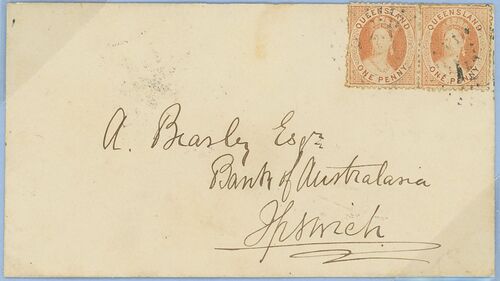 QUEENSLAND QUEENSLAND
ONE PENNY ONE PENNY
A. Beasley Esqr
Bank of Australasia
Ipswich